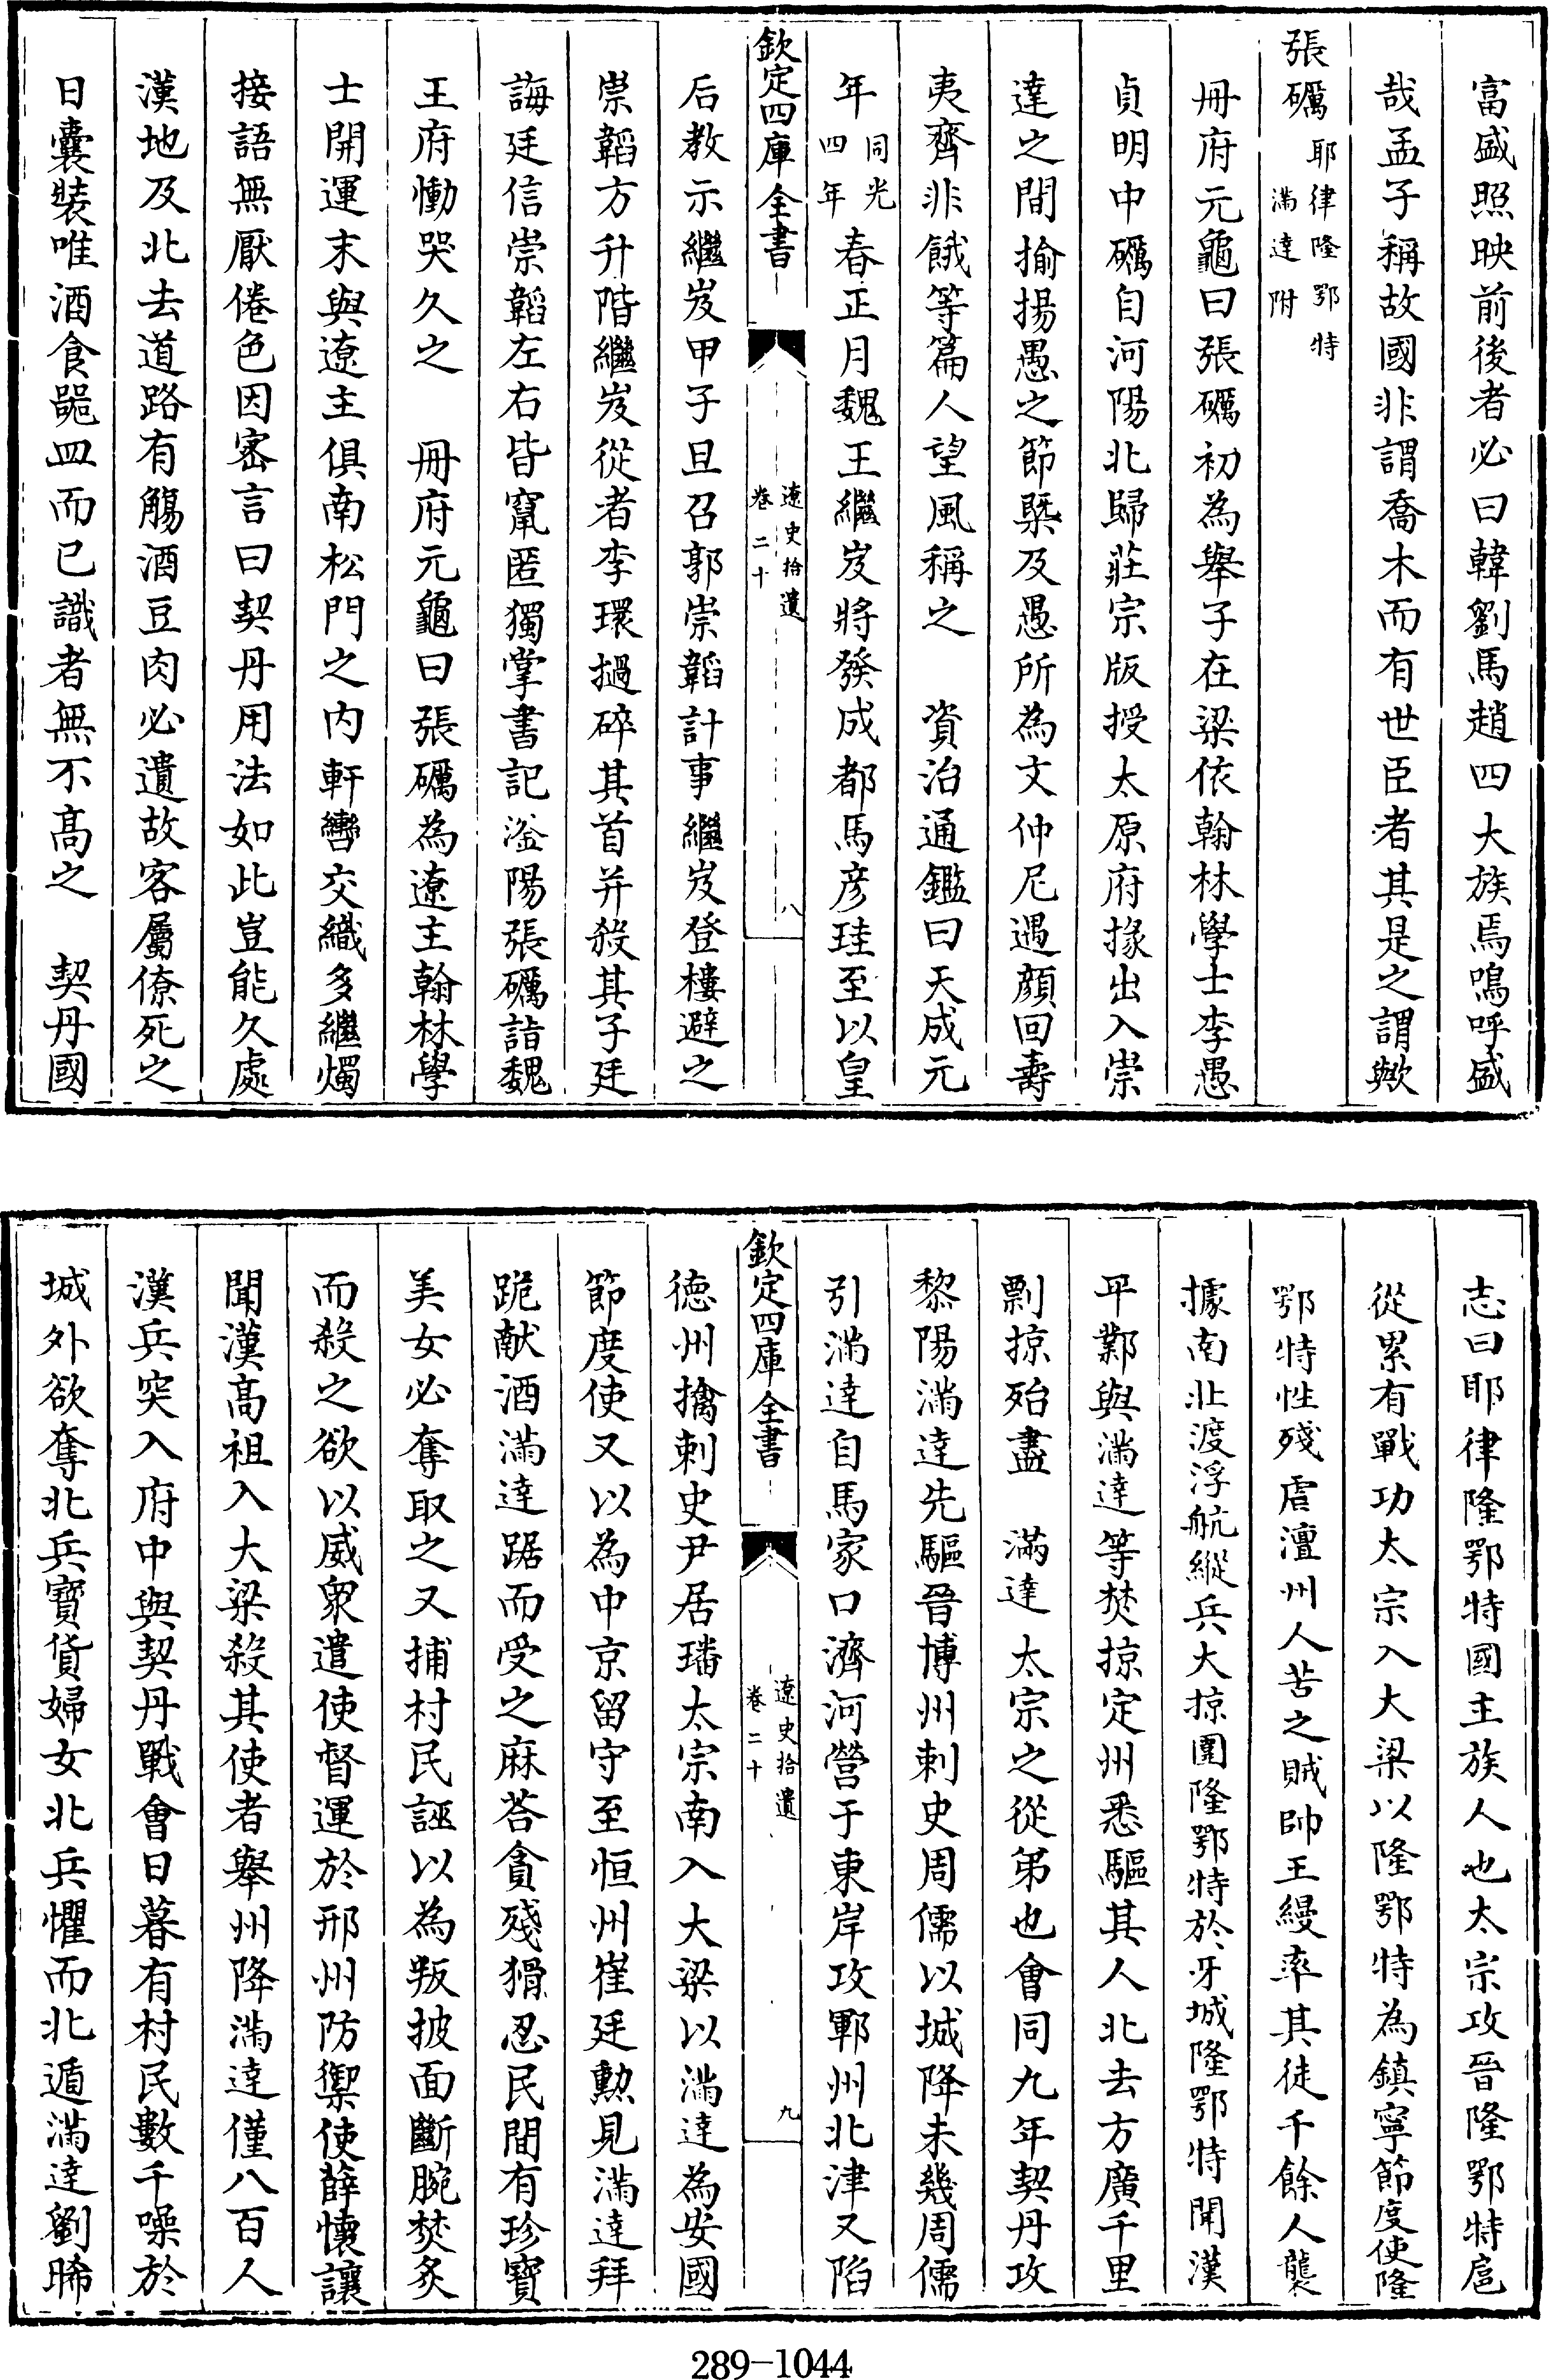 富盛照映前後者必曰韓劉馬趙四大族焉嗚呼盛
哉孟子稱故國非謂喬木而有世臣者其是之謂歟
張礪耶律隆鄂特滿達附
冊府元龜曰張礪初為舉子在梁依翰林學士李愚
貞明中礪自河陽北歸莊宗版授太原府掾出入崇
達之間揄揚愚之節槩及愚所為文仲尼遇顏回壽
夷齊非餓等篇人望風稱之　資治通鑑曰天成元
年同光四年春正月魏王繼岌將發成都馬彥珪至以皇
欽定四庫全書
遼史拾遺
卷二十
八
后教示繼岌甲子旦召郭崇韜計事繼岌登樓避之
崇韜方升階繼岌從者李環撾碎其首并殺其子廷
誨廷信崇韜左右皆竄匿獨掌書記滏陽張礪詣魏
王府慟哭久之　冊府元龜曰張礪為遼主翰林學
士開運末與遼主俱南松門之內軒轡交織多繼燭
接語無厭倦色因密言曰契丹用法如此豈能久處
漢地及北去道路有觴酒豆肉必遺故客屬僚死之
日囊裝唯酒食器皿而已識者無不高之　契丹國
志曰耶律隆鄂特國主族人也太宗攻晉隆鄂特扈
從累有戰功太宗入大梁以隆鄂特為鎮寧節度使隆
鄂特性殘虐澶州人苦之賊帥王縵率其徒千餘人襲
據南北渡浮航縱兵大掠圍隆鄂特於牙城隆鄂特聞漢
平鄴與滿達等焚掠定州悉驅其人北去方廣千里
剽掠殆盡　滿達太宗之從弟也會同九年契丹攻
黎陽滿達先驅晉博州刺史周儒以城降未幾周儒
引滿達自馬家口濟河營于東岸攻鄆州北津又陷
欽定四庫全書
遼史拾遺
卷二十
九
德州擒刺史尹居璠太宗南入大梁以滿達為安國
節度使又以為中京留守至恒州崔廷勳見滿達拜
跪献酒滿達踞而受之麻荅貪殘猾忍民間有珍寶
美女必奪取之又捕村民誣以為叛披面斷腕焚炙
而殺之欲以威衆遣使督運於邢州防禦使薛懷讓
聞漢高祖入大梁殺其使者舉州降滿達僅八百人
漢兵突入府中與契丹戰會日暮有村民數千噪於
城外欲奪北兵寶貨婦女北兵懼而北遁滿達劉晞
289-1044